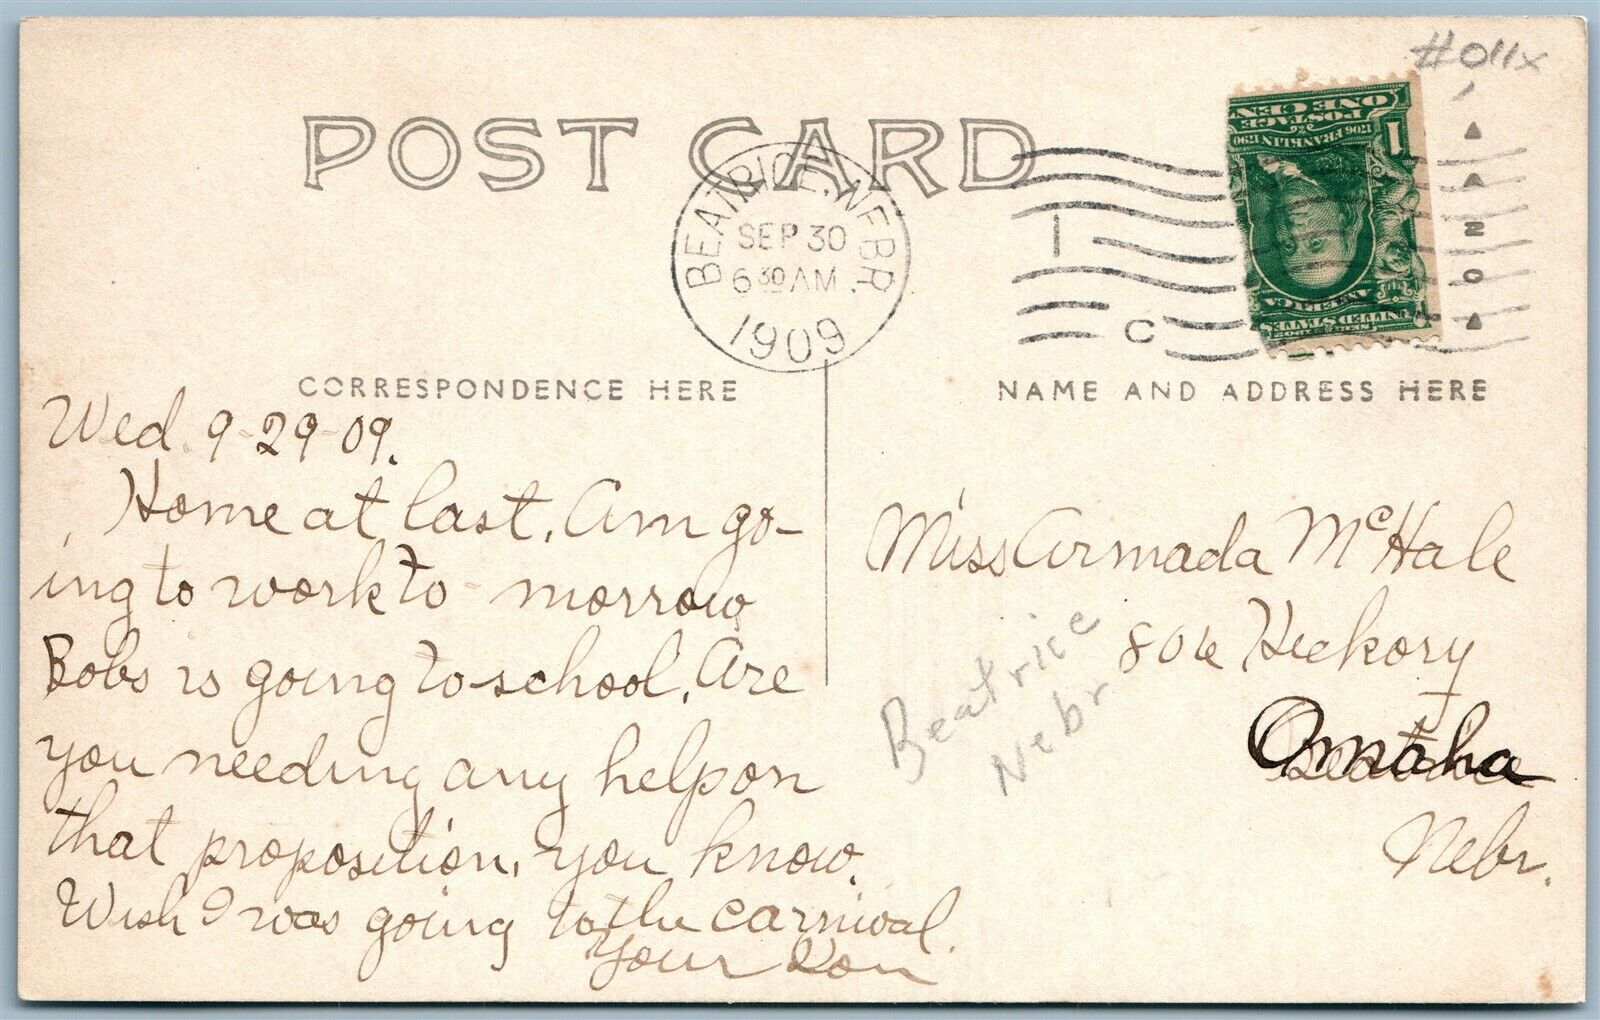 #011x
POST CARD
BEATRICE, NEBR.
SEP 30
6 30 AM
1909
1 C
CORRESPONDENCE HERE
NAME AND ADDRESS HERE
1 ONE CEN 1
POSTAGE
1706 FRANKLIN 1790
UNITED STATES
AMERICA
Wed. 9-29-09.
Home at last. Am go-
ing to work to-morrow
Bobs is going to school. Are
you needing any help on
that proposition, you know.
Wish I was going to the carnival.
Your
Miss Armada McHale
806 Hickory
Omaha
Nebr.
Beatrice
Nebr